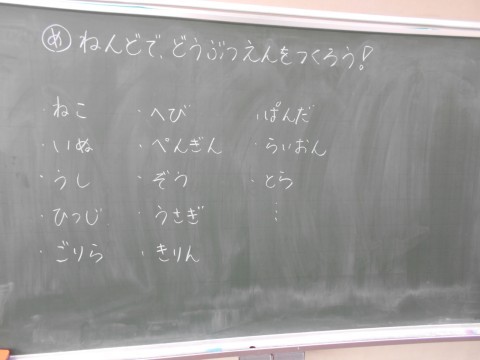 め ねんどで、どうぶつえんをつくろう!
・ねこ
・いぬ
・うし
・ひつじ
・ごりら
・へび
・ぺんぎん
・ぞう
・うさぎ
・きりん
・ぱんだ
・らいおん
・とら
⋮